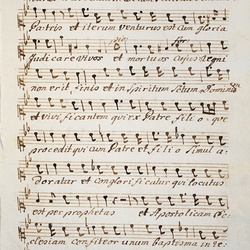 Patris et iterum venturus est cum gloria
judicare vivos et mortuos Cujus regni
non erit finis et in Spiritum Stum Dominum
et vivificantem qui ex Patre filioque
procedit qui cum Patre et filio Simul a-
doratur et conglorificatur qui locutus
est per prophetas et Apostolicam Ec-
clesiam Confiteor unum baptisma in re-